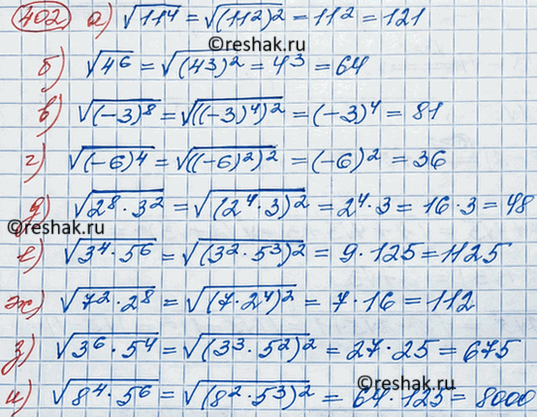 402 а) √11⁴ = √(11²)² = 11² = 121
©reshak.ru
б) √4⁶ = √(4³)² = 4³ = 64
в) √(-3)⁸ = √((-3)⁴)² = (-3)⁴ = 81
г) √(-6)⁴ = √((-6)²)² = (-6)² = 36
д) √2⁸·3² = √(2⁴·3)² = 2⁴·3 = 16·3 = 48
©reshak.ru
©reshak.ru
е) √3⁴·5⁶ = √(3²·5³)² = 9·125 = 1125
ж) √7²·2⁸ = √(7·2⁴)² = 7·16 = 112
з) √3⁶·5⁴ = √(3³·5²)² = 27·25 = 675
©reshak.ru
и) √8⁴·5⁶ = √(8²·5³)² = 64·125 = 8000